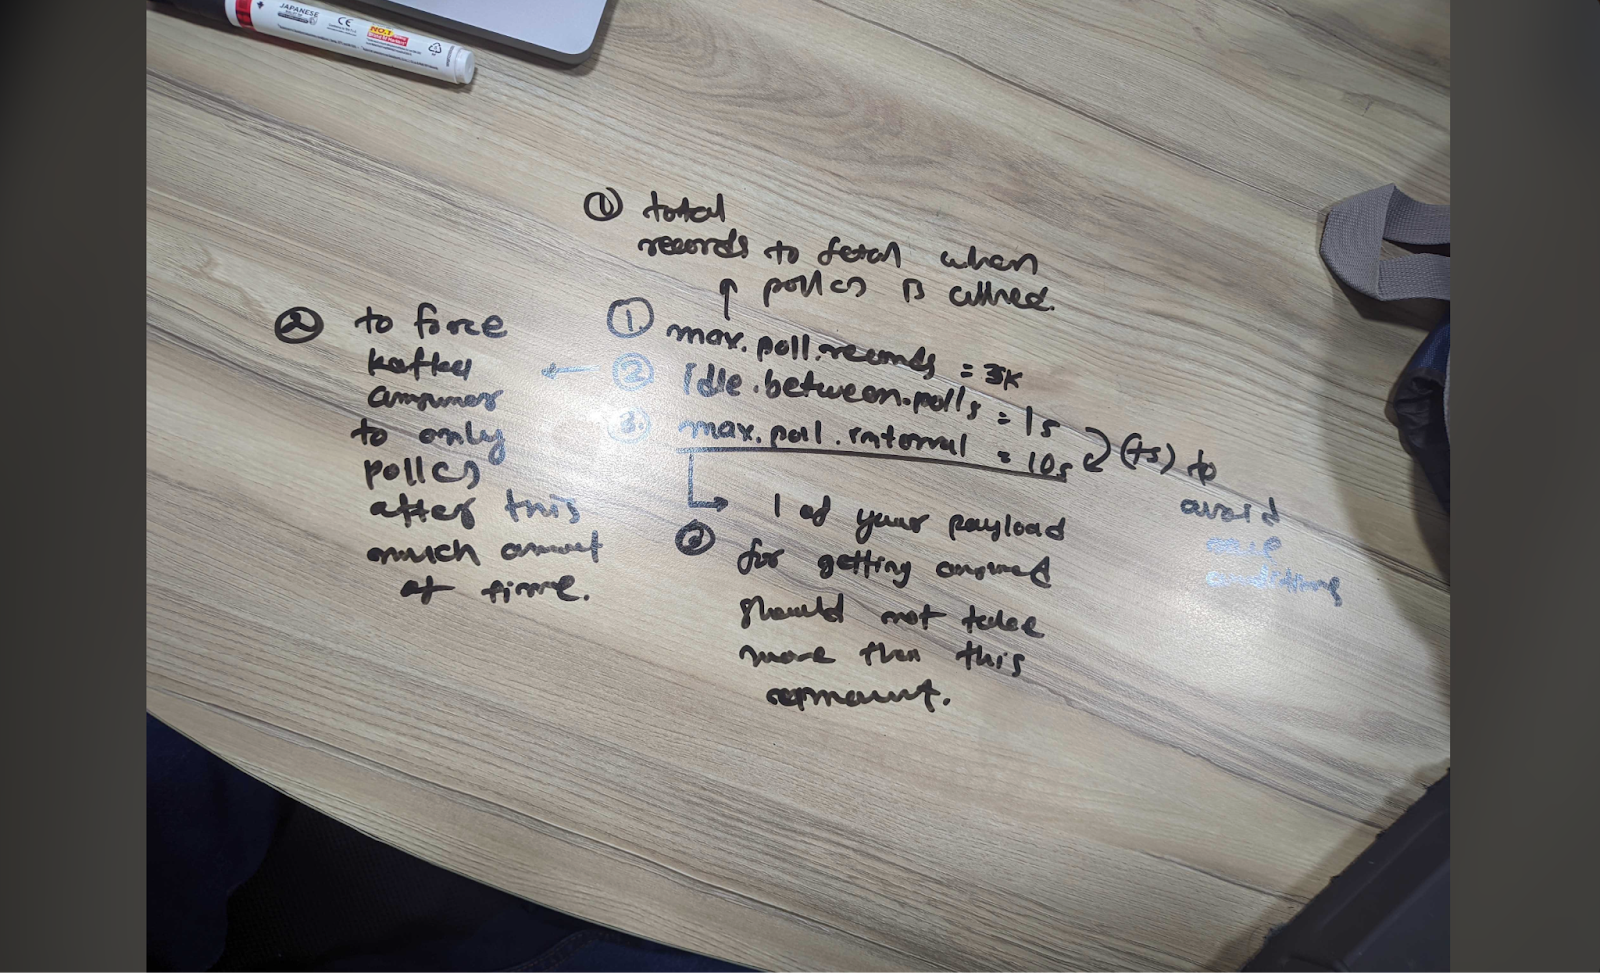 JAPANESE
CE
NO.1
① total
records to fetch when
poll() is called.
① max.poll.records = 3K
② idle.between.polls = 1s
③ max.poll.interval = 10s
(+s) to
avoid
race
conditions
② to force
kafka
consumer
to only
poll()
after this
much amount
of time.
③ 1 of your payload
for getting consumed
should not take
more than this
amount.